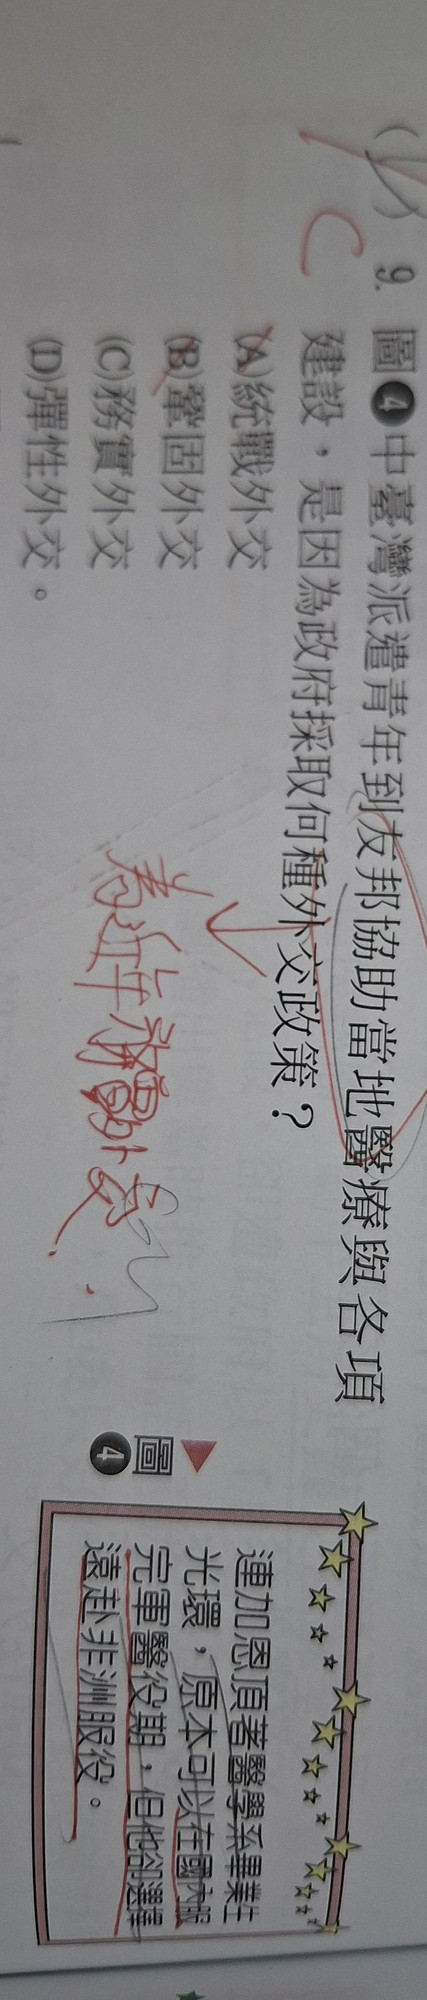 9. 圖❹中臺灣派遣青年到友邦協助當地醫療與各項
建設，是因為政府採取何種外交政策？
(A)統戰外交
(B)鞏固外交
(C)務實外交
(D)彈性外交。
C
為近年務實外交
▲圖❹
連加恩頂著醫學系畢業生
光環，原本可以在國內服
完軍醫役期，但他卻選擇
遠赴非洲服役。